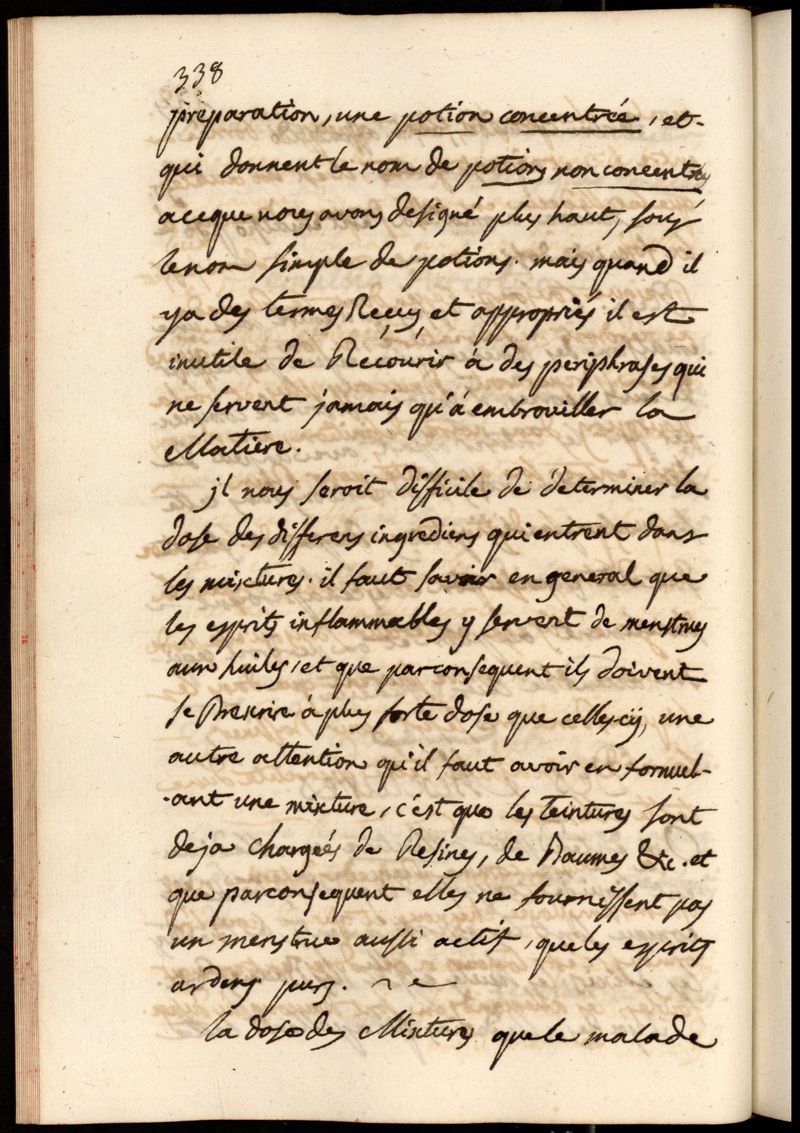 338
preparation, une potion concentrée, et
qui donnent le nom de potions non concentrés
a ceque nous avons designé plus haut, sous
le nom simple de potions. mais quand il
ya des termes Reçus, et appropriés il est
inutile de Récourir à des periphrases qui
ne servent jamais qu'à embrouiller la
Matiere.
jl nous seroit difficile de determiner la
dose des differens ingrediens qui entrent dans
les mixtures. il faut savoir en general que
les esprits inflammables y servent de menstrues
aux huiles, et que parconsequent ils doivent
se Prescrire à plus forte dose que celles cÿ, une
autre attention qu'il faut avoir en formul-
-ant une mixture, c'est que les teintures sont
deja chargeés de Resines, de Baumes &c. et
que parconsequent elles ne fournissent pas
un menstrue aussi actif, que les esprits
ardens purs.
la dose des Mixtures que le malade